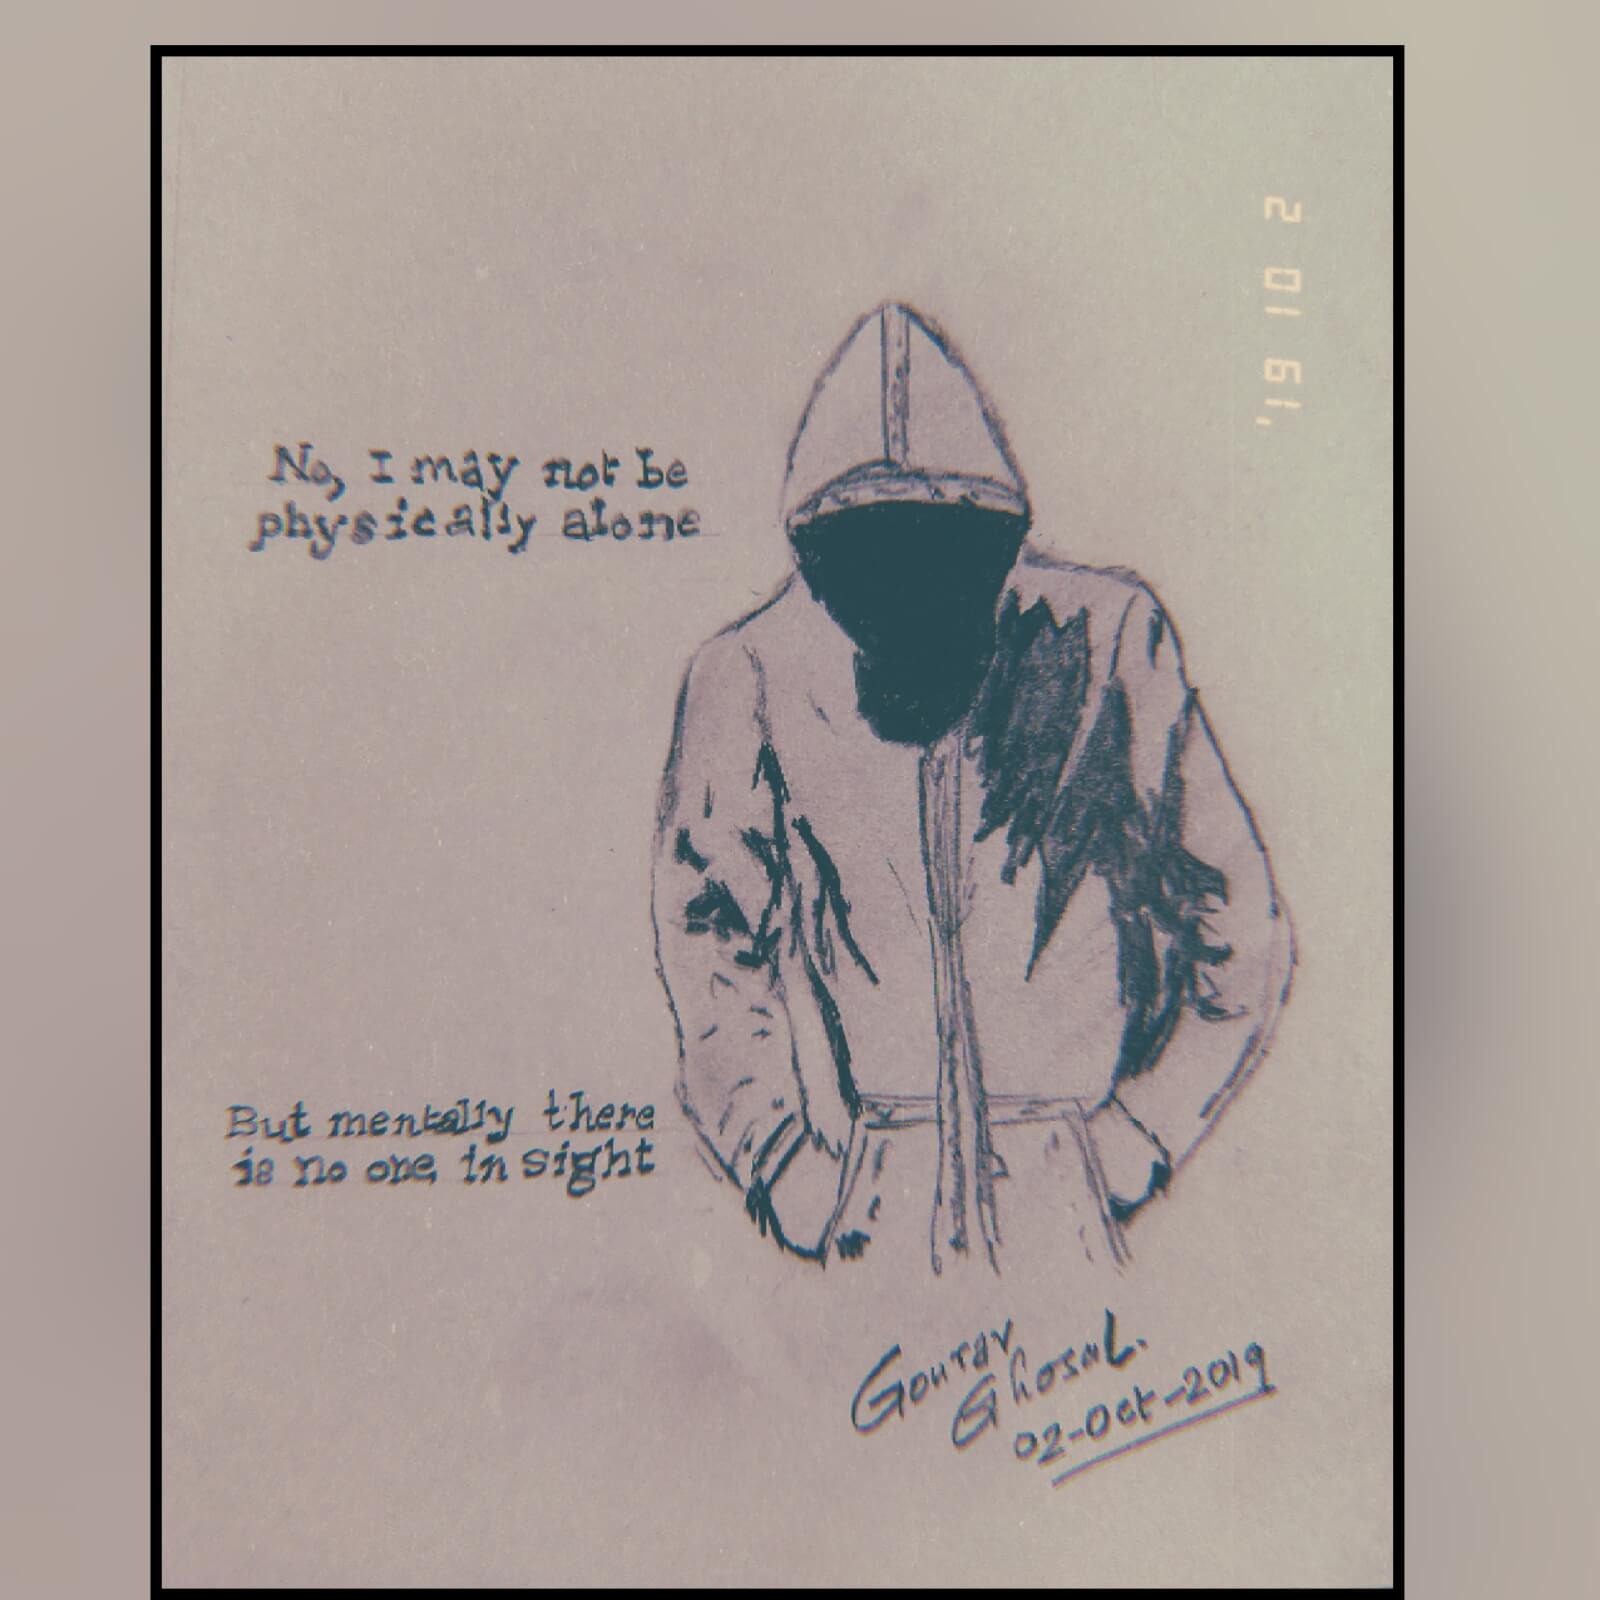 2 01 61,
No, I may not be
physically alone
But mentally there
is no one in sight
Gourav
Ghosal.
02-Oct-2019